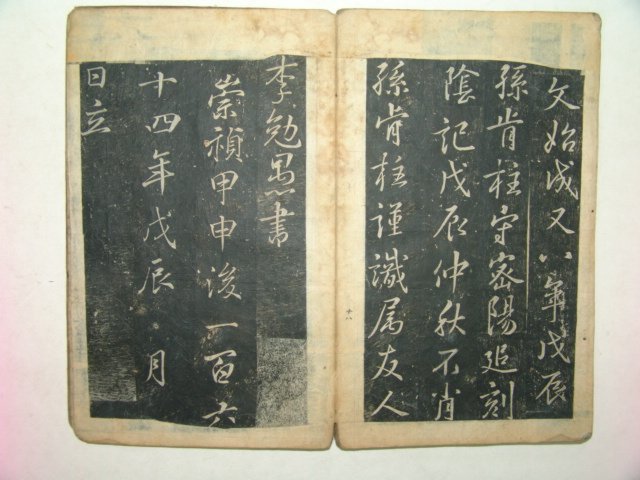 文始成又八年戊辰
孫肯柱守密陽追刻
陰記戊辰仲秋不肖
孫肯柱謹識属友人
李勉愚書
崇禎甲申後一百六
十四年戊辰八月
日立
十八